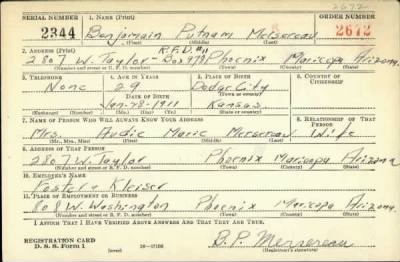 2672
SERIAL NUMBER 1. NAME (Print) ORDER NUMBER
2344 Benjamain Putnam Mersereau 2672
(First) (Middle) (Last)
2. ADDRESS (Print) R.F.D. #11
2807 W. Taylor - Box 978 Phoenix Maricopa Arizona.
(Number and street or R. F. D. number) (Town) (County) (State)
3. TELEPHONE 4. AGE IN YEARS 5. PLACE OF BIRTH 6. COUNTRY OF CITIZENSHIP
None 29 Dodge City
DATE OF BIRTH (Town or county)
Jan-28-1911 Kansas.
(Exchange) (Number) (Mo.) (Day) (Yr.) (State or country)
7. NAME OF PERSON WHO WILL ALWAYS KNOW YOUR ADDRESS 8. RELATIONSHIP OF THAT PERSON
Mrs. Audie Marie Mersereau Wife
(Mr., Mrs., Miss) (First) (Middle) (Last)
9. ADDRESS OF THAT PERSON
2807 W. Taylor Phoenix Maricopa Arizona
(Number and street or R. F. D. number) (Town) (County) (State)
10. EMPLOYER'S NAME
Foster & Kleiser
11. PLACE OF EMPLOYMENT OR BUSINESS
808 W. Washington Phoenix Maricopa Arizona.
(Number and street or R. F. D. number) (Town) (County) (State)
I AFFIRM THAT I HAVE VERIFIED ABOVE ANSWERS AND THAT THEY ARE TRUE.
REGISTRATION CARD B. P. Mersereau
D. S. S. Form 1 (over) (Registrant's signature)